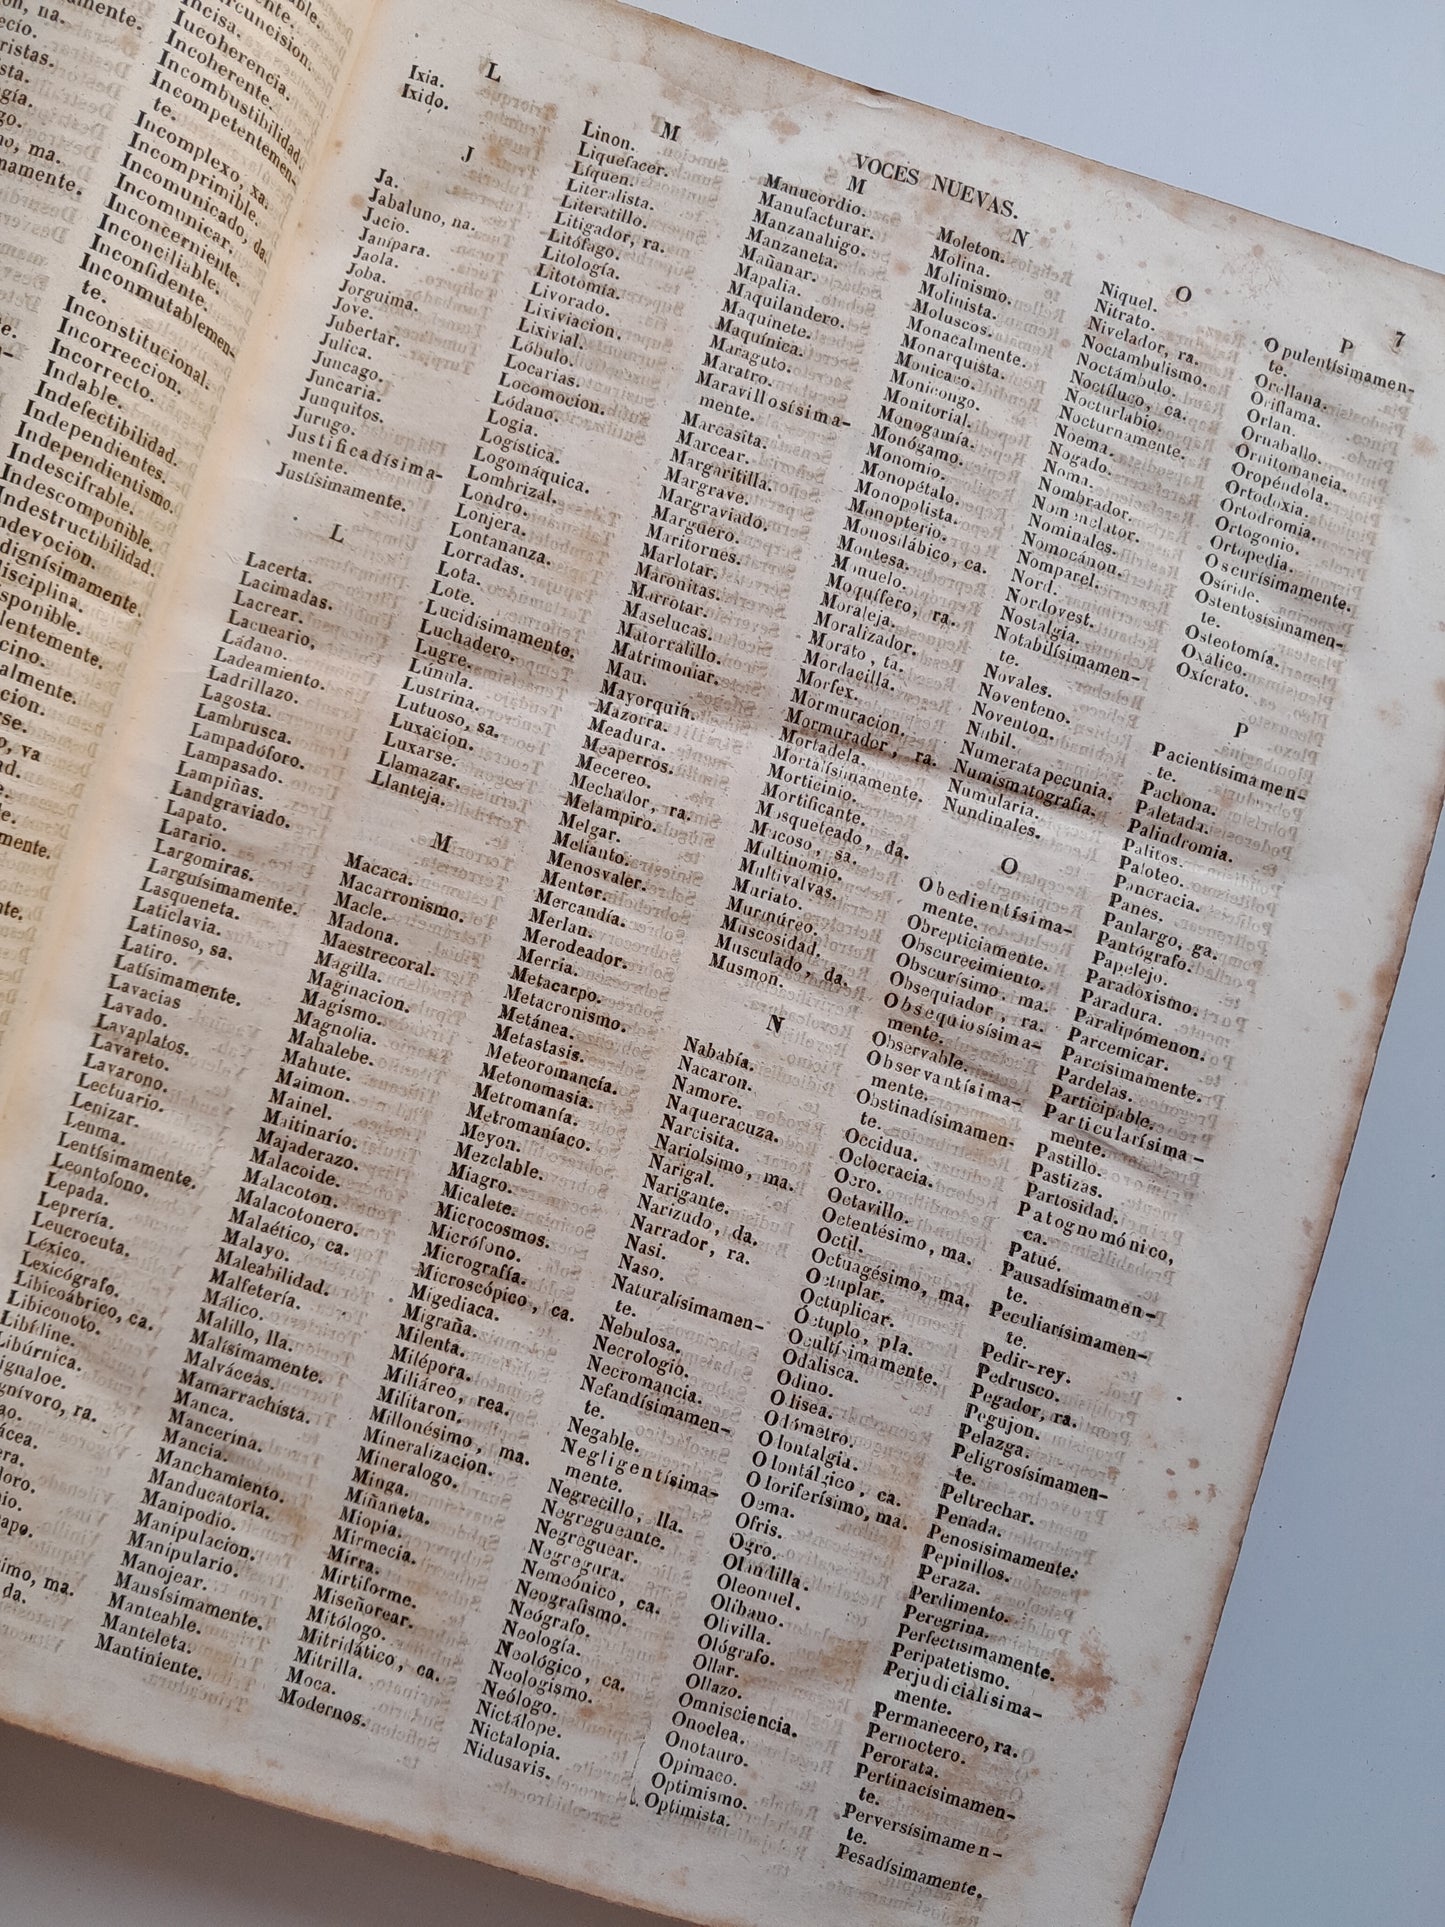 Incisa.
Iucoherencia.
Incoherente.
Incombustibilidad.
Incompetentemen-
te.
Incomplexo, xa.
Incomprimible.
Incomunicado, da.
Incomunicar.
Inconcerniente.
Inconciliable.
Inconfidente.
Inconmutablemen-
te.
Inconstitucional.
Incorreccion.
Incorrecto.
Indable.
Indefectibilidad.
Independientes.
Independientismo.
Indescifrable.
Indescomponible.
Indestructibilidad.
Indevocion.
VOCES NUEVAS.
7
L
Ixia.
Ixido.
J
Ja.
Jabaluno, na.
Jacio.
Janípara.
Jaola.
Joba.
Jorguima.
Jove.
Jubertar.
Julica.
Juncago.
Juncaria.
Junquitos.
Jurugo.
Justificadísima-
mente.
Justísimamente.
L
Lacerta.
Lacimadas.
Lacrear.
Lacueario,
Ládano.
Ladeamiento.
Ladrillazo.
Lagosta.
Lambrusca.
Lampadóforo.
Lampasado.
Lampiñas.
Landgraviado.
Lapato.
Larario.
Largomiras.
Larguísimamente.
Lasqueneta.
Laticlavia.
Latinoso, sa.
Latiro.
Latísimamente.
Lavacias
Lavado.
Lavaplatos.
Lavareto.
Lavarono.
Lectuario.
Lenizar.
Lenma.
Lentísimamente.
Leontofono.
Lepada.
Leprería.
Leucrocuta.
Léxico.
Lexicógrafo.
Libicoábrico, ca.
Libiconoto.
M
Linon.
Liquefacer.
Líquen.
Literalista.
Literatillo.
Litigador, ra.
Litófago.
Litología.
Litotomía.
Livorado.
Lixiviacion.
Lixivial.
Lóbulo.
Locarias.
Locomocion.
Lódano.
Logia.
Logística.
Logomáquica.
Lombrizal.
Londro.
Lonjera.
Lontananza.
Lorradas.
Lota.
Lote.
Lucidísimamente.
Luchadero.
Lugre.
Lúnula.
Lustrina.
Lutuoso, sa.
Luxacion.
Luxarse.
Llamazar.
Llanteja.
M
Macaca.
Macarronismo.
Macle.
Madona.
Maestrecoral.
Magilla.
Maginacion.
Magismo.
Magnolia.
Mahalebe.
Mahute.
Maimon.
Mainel.
Maitinario.
Majaderazo.
Malacoide.
Malacoton.
Malacotonero.
Malaético, ca.
Malayo.
Maleabilidad.
Malfetería.
Málico.
Malillo, lla.
Malísimamente.
Malváceas.
Mamarrachista.
Manca.
Mancerina.
Mancia.
Manchamiento.
Manducatoria.
Manipodio.
Manipulacion.
Manipulario.
Manojear.
Mansísimamente.
Manteable.
Manteleta.
Mantiniente.
M
Manucordio.
Manufacturar.
Manzanahigo.
Manzaneta.
Mañanar.
Mapalia.
Maquilandero.
Maquinete.
Maquínica.
Maraguto.
Maratro.
Maravillosísima-
mente.
Marcasita.
Marcear.
Margaritilla.
Margrave.
Margraviado.
Marguero.
Maritornes.
Marlotar.
Maronitas.
Marrotar.
Maselucas.
Matorralillo.
Matrimoniar.
Mau.
Mayorquin.
Mazorra.
Meadura.
Meaperros.
Mecereo.
Mechador, ra.
Melampiro.
Melgar.
Melianto.
Menosvaler.
Mentor.
Mercandía.
Merlan.
Merodeador.
Merria.
Metacarpo.
Metacronismo.
Metánea.
Metastasis.
Meteoromancía.
Metonomasia.
Metromanía.
Metromaníaco.
Meyon.
Mezclable.
Miagro.
Micalete.
Microcosmos.
Micrófono.
Micrografía.
Microscópico, ca.
Migediaca.
Migraña.
Milenta.
Milépora.
Miliáreo, rea.
Militaron.
Millonésimo, ma.
Mineralizacion.
Mineralogo.
Minga.
Miñaneta.
Miopia.
Mirmecia.
Mirra.
Mirtiforme.
Miseñorear.
Mitólogo.
Mitridático, ca.
Mitrilla.
Moca.
Modernos.
N
Moleton.
Molina.
Molinismo.
Molinista.
Moluscos.
Monacalmente.
Monarquista.
Monicaco.
Monicongo.
Monitorial.
Monogamía.
Monógamo.
Monomio.
Monopétalo.
Monopolista.
Monopterio.
Monosilábico, ca.
Montesa.
Monuelo.
Moquífero, ra.
Moraleja.
Moralizador.
Morato, ta.
Mordacilla.
Morfex.
Mormuracion.
Mormurador, ra.
Mortadela.
Mortalísimamente.
Morticinio.
Mortificante.
Mosqueteado, da.
Mucoso, sa.
Multinomio.
Multivalvas.
Muriato.
Murmúreo.
Muscosidad.
Musculado, da.
Musmon.
N
Nababía.
Nacaron.
Namore.
Naqueracuza.
Narcisita.
Nariolsimo, ma.
Narigal.
Narigante.
Narizudo, da.
Narrador, ra.
Nasi.
Naso.
Naturalísimamen-
te.
Nebulosa.
Necrologio.
Necromancia.
Nefandísimamen-
te.
Negable.
Negligentísima-
mente.
Negrecillo, lla.
Negregueante.
Negreguear.
Negregura.
Nemeónico, ca.
Neografismo.
Neógrafo.
Neología.
Neológico, ca.
Neologismo.
Neólogo.
Nictálope.
Nictalopia.
Nidusavis.
O
Niquel.
Nitrato.
Nivelador, ra.
Noctambulismo.
Noctámbulo.
Noctíluco, ca.
Nocturlabio.
Nocturnamente.
Noema.
Nogado.
Noma.
Nombrador.
Nomenclator.
Nominales.
Nomocánon.
Nomparel.
Nord.
Nordovest.
Nostalgia.
Notabilísimamen-
te.
Novales.
Noventeno.
Noventon.
Nubil.
Numerata pecunia.
Numismatografía.
Numularia.
Nundinales.
O
Obedientísima-
mente.
Obrepticiamente.
Obscurecimiento.
Obscurísimo, ma.
Obsequiador, ra.
Obsequiosísima-
mente.
Observable.
Observantísima-
mente.
Obstinadísimamen-
te.
Occidua.
Oclocracia.
Ocro.
Octavillo.
Octentésimo, ma.
Octil.
Octuagésimo, ma.
Octuplar.
Octuplicar.
Óctuplo, pla.
Ocultísimamente.
Odalisca.
Odino.
Odisea.
Odómetro.
Odontalgia.
Odontálgico, ca.
Odoriferísimo, ma.
Oema.
Ofris.
Ogro.
Olandilla.
Oleomiel.
Olíbano.
Olivilla.
Ológrafo.
Ollar.
Ollazo.
Omnisciencia.
Onoclea.
Onotauro.
Opimaco.
Optimismo.
Optimista.
P
Opulentísimamen-
te.
Orellana.
Oriflama.
Orlan.
Ornaballo.
Ornitomancia.
Oropéndola.
Ortodoxia.
Ortodromia.
Ortogonio.
Ortopedia.
Oscurísimamente.
Osíride.
Ostentosísimamen-
te.
Osteotomía.
Oxálico.
Oxícrato.
P
Pacientísimamen-
te.
Pachona.
Paletada.
Palindromia.
Palitos.
Paloteo.
Pancracia.
Panes.
Panlargo, ga.
Pantógrafo.
Papelejo.
Paradoxismo.
Paradura.
Paralipómenon.
Parcemicar.
Parcísimamente.
Pardelas.
Participable.
Particularísima-
mente.
Pastillo.
Pastizas.
Partosidad.
Patognomónico,
ca.
Patué.
Pausadísimamen-
te.
Peculiarísimamen-
te.
Pedir-rey.
Pedrusco.
Pegador, ra.
Pegujon.
Pelazga.
Peligrosísimamen-
te.
Peltrechar.
Penada.
Penosísimamente.
Pepinillos.
Peraza.
Perdimento.
Peregrina.
Perfectísimamente.
Peripatetismo.
Perjudicialísima-
mente.
Permanecero, ra.
Pernoctero.
Perorata.
Pertinacísimamen-
te.
Perversísimamen-
te.
Pesadísimamente.